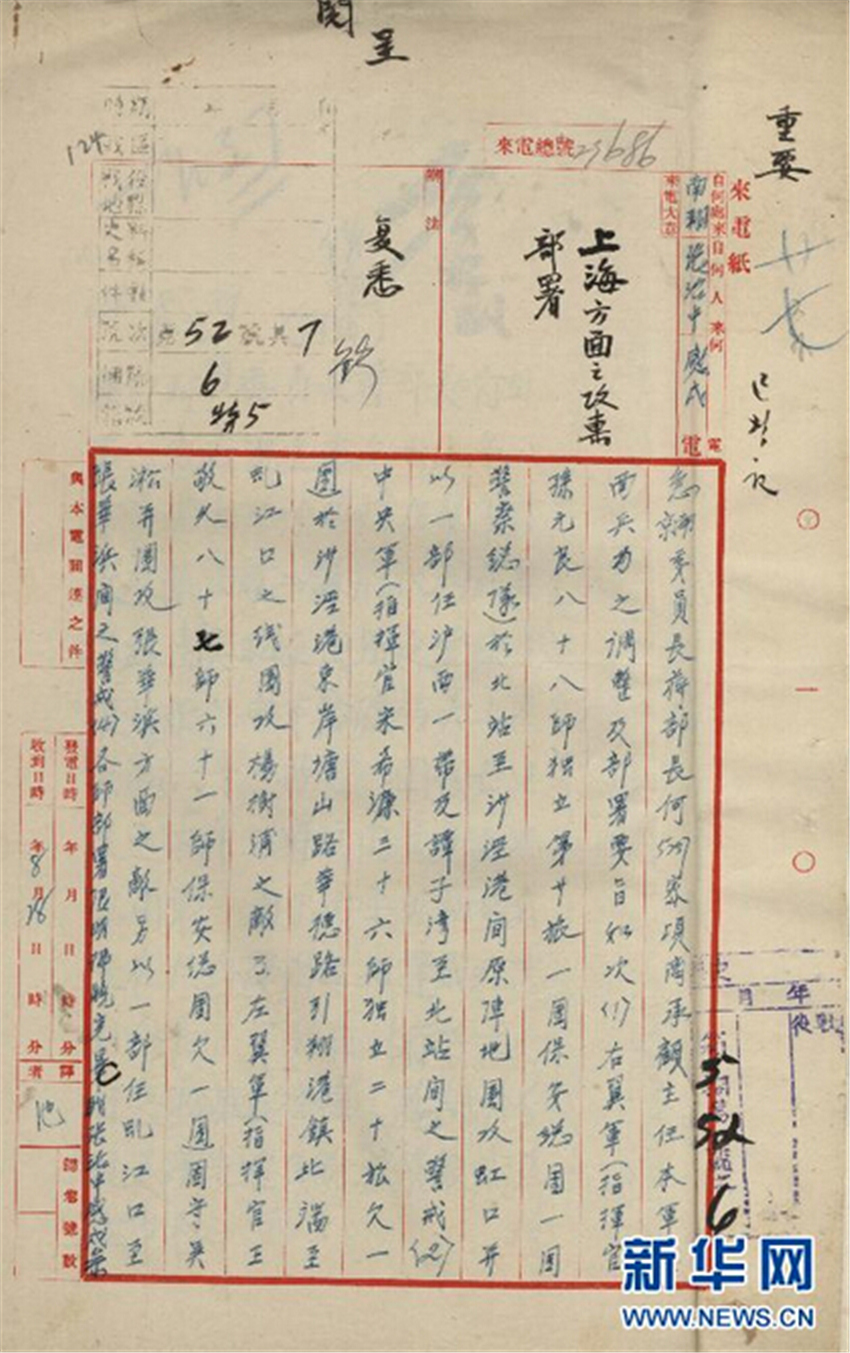 閱
呈
重要
來電紙
來電總號
29686
自何處來自何人來何電
南翔張治中感戌電
來電大意
上海方面之攻擊
部署
辦法
复悉
124
52
7
6
特5
急京委員長蔣部長何家項商承顧主任本軍
面兵力之調整及部署要旨如次(1)右翼軍(指揮官
孫元良八十八師獨立第廿旅一團保安總團一團
警察總隊)於北站至沙涇港間原陣地圍攻虹口并
以一部任沪西一帶及譚子湾至北站間之警戒(2)
中央軍(指揮官宋希濂三十六師獨立二十旅欠一
團)於沙涇港東岸塘山路華德路引翔港鎮北端至
虬江口之线圍攻楊樹浦之敵3左翼軍(指揮官王
敬久八十七師六十一師保安總團欠一團固守吳
淞并圍攻張華浜方面之敵另以一部任虬江口至
張華浜間之警戒(4)各師部署限明拂曉完畢 張治中感戌
與本電關連之件
發電日時 年 月 日 時 分
收到日時 年8月28日 時 分
譯者
年 月
6
新华网
WWW.NEWS.CN